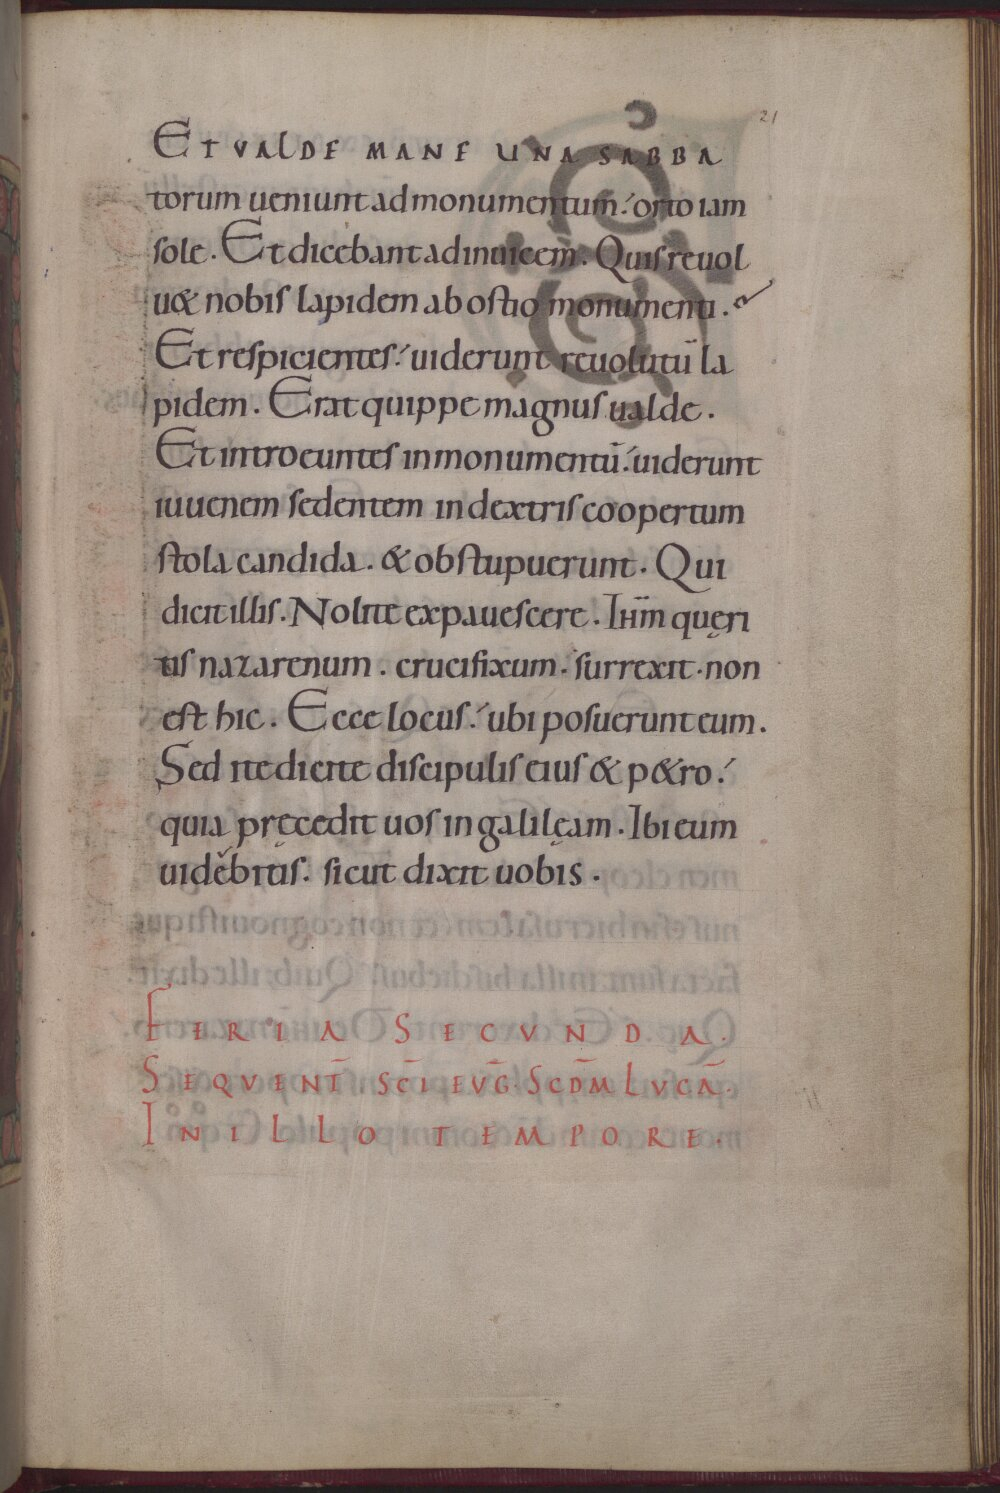 21
ET VALDE MANE UNA SABBA
torum ueniunt ad monumentum; orto iam
sole. Et dicebant adinuicem. Quis reuol
u& nobis lapidem ab ostio monumenti.
Et respicientes; uiderunt reuolutū la
pidem. Erat quippe magnus ualde.
Et introeuntes in monumentū; uiderunt
iuuenem sedentem in dextris coopertum
stola candida. & obstupuerunt. Qui
dicit illis. Nolite expauescere. Ihm̄ quęri
tis nazarenum. crucifixum. surrexit. non
est hic. Ecce locus; ubi posuerunt eum.
Sed ite dicite discipulis eius & p&ro;
quia pręcedit uos in galilęam. Ibi eum
uidebitis. sicut dixit uobis.
FERIA SECVNDA.
SEQVENT̄ SC̄I EVḠ. SCD̄M LVCĀ.
IN ILLO TEMPORE.